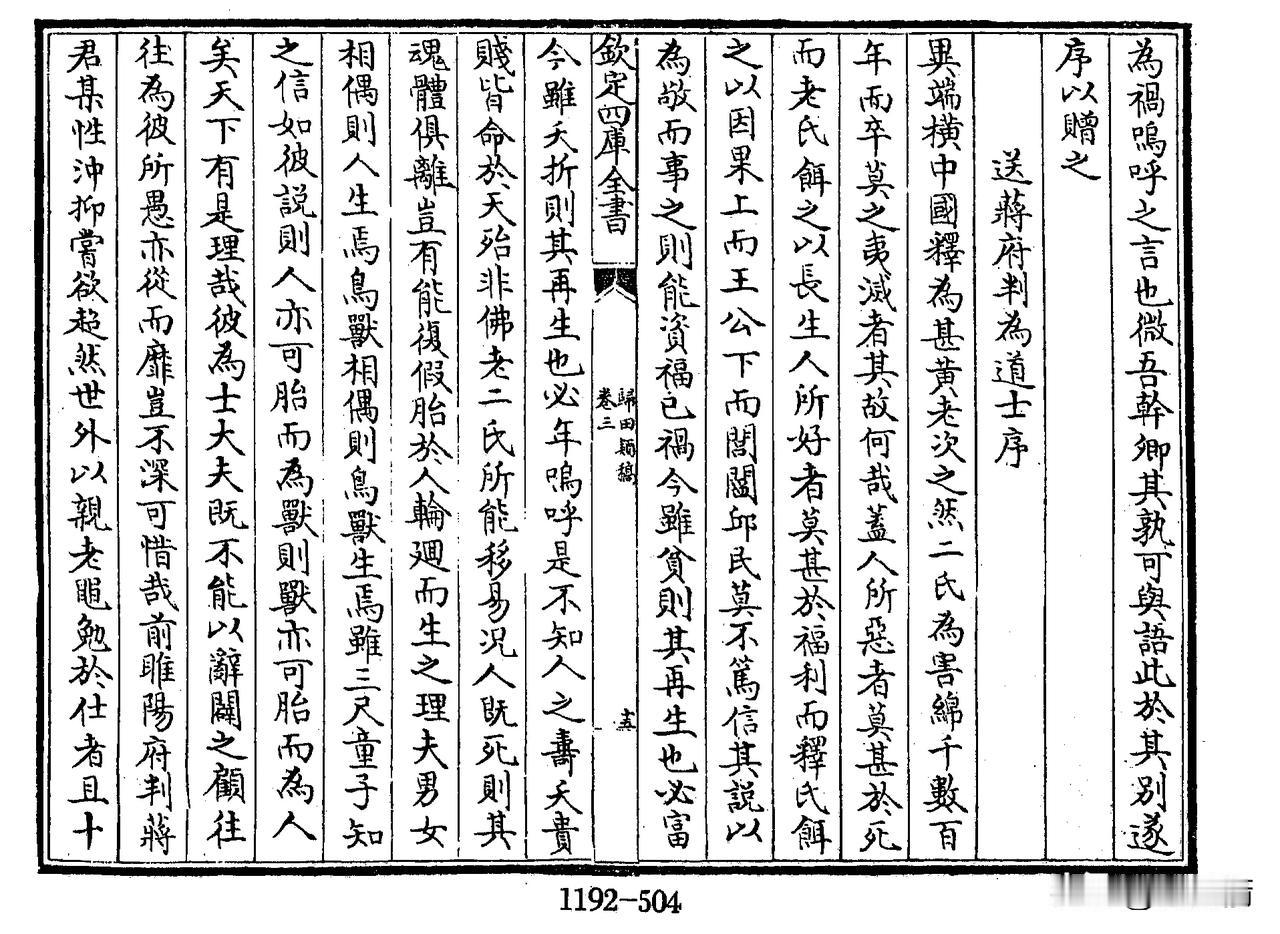 為禍嗚呼之言也微吾幹卿其孰可與語此於其别遂
序以贈之
送蔣府判為道士序
異端橫中國釋為甚黃老次之然二氏為害綿千數百
年而卒莫之夷滅者其故何哉蓋人所惡者莫甚於死
而老氏餌之以長生人所好者莫甚於福利而釋氏餌
之以因果上而王公下而閭閻邱民莫不篤信其說以
為敬而事之則能資福已禍今雖貧則其再生也必富
欽定四庫全書
歸田類稿
卷三
十五
今雖夭折則其再生也必年嗚呼是不知人之壽夭貴
賤皆命於天殆非佛老二氏所能移易況人既死則其
魂體俱離豈有能復假胎於人輪廻而生之理夫男女
相偶則人生焉鳥獸相偶則鳥獸生焉雖三尺童子知
之信如彼說則人亦可胎而為獸則獸亦可胎而為人
矣天下有是理哉彼為士大夫既不能以辭闢之顧往
往為彼所愚亦從而靡豈不深可惜哉前睢陽府判蔣
君某性沖抑嘗欲超然世外以親老黽勉於仕者且十
1192-504